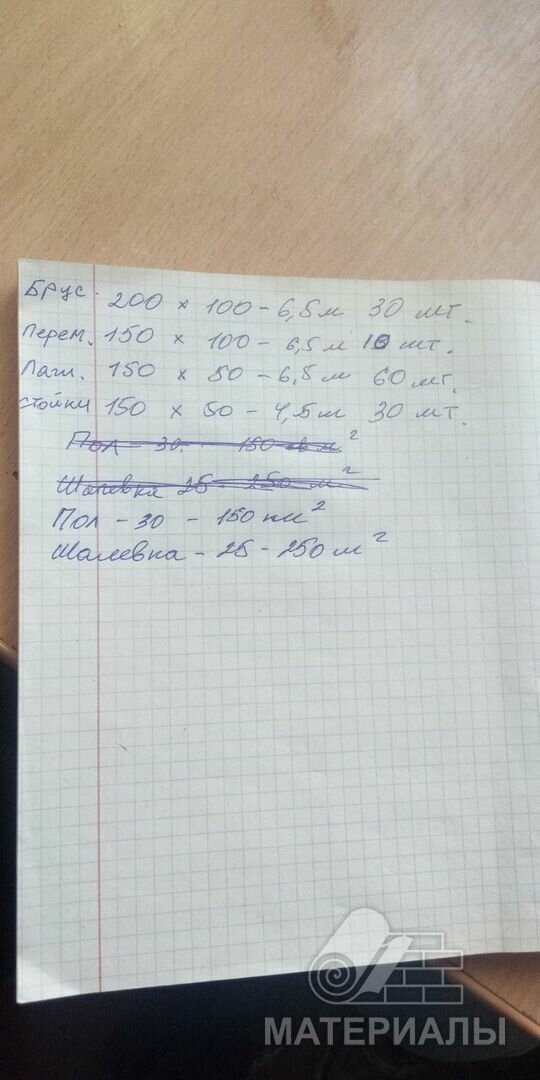 Брус. 200 х 100 - 6,5м 30 шт.
Перем. 150 х 100 - 6,5м 10 шт.
Лаги. 150 х 50 - 6,5м 60 шт.
Стойки 150 х 50 - 4,5м 30 шт.
Пол - 30 - 150 кв м²
Шалевка 25 - 250 м²
Пол - 30 - 150 км²
Шалевка - 25 - 250 м²
МАТЕРИАЛЫ